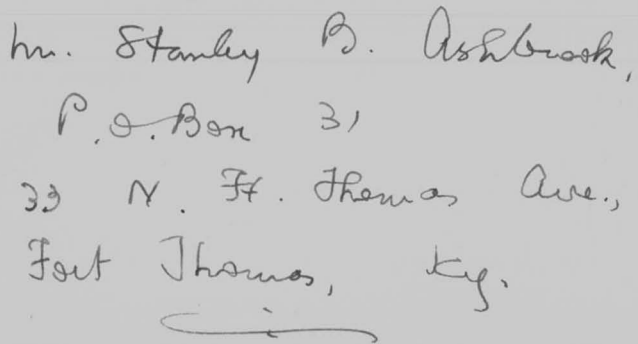 Mr. Stanley B. Ashbrook,
P.O. Box 31
33 N. Ft. Thomas Ave.,
Fort Thomas, Ky.